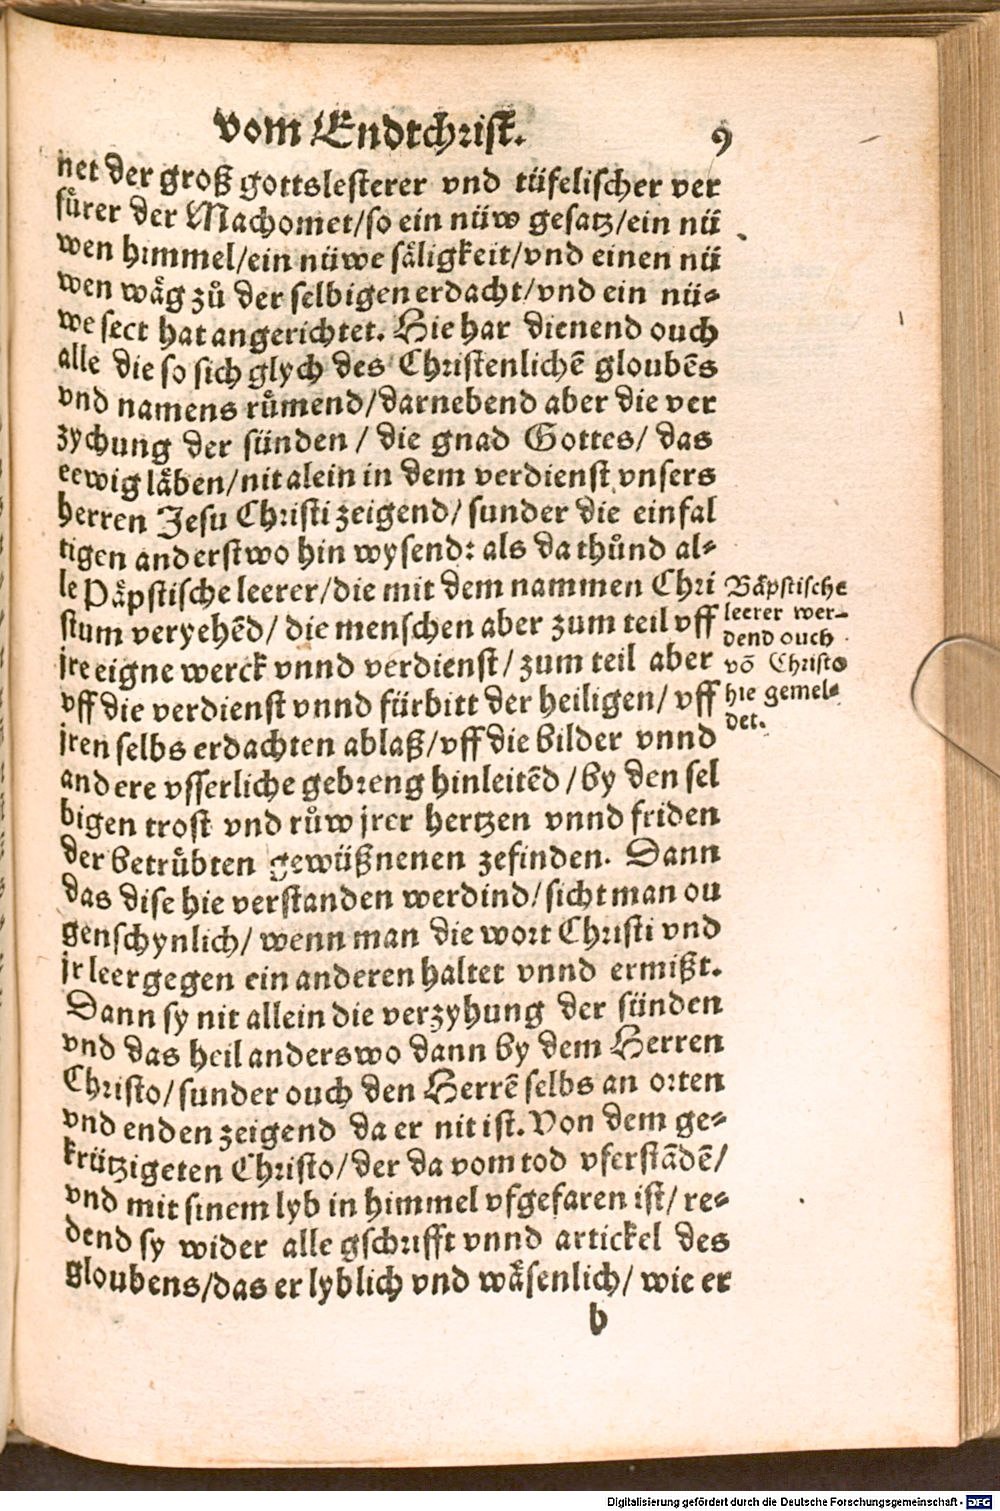 vom Endtchrist. 9
net der groß gottslesterer vnd tüfelischer ver
fuͤrer der Machomet/so ein nüw gesatz/ein nü
wen himmel/ein nüwe säligkeit/vnd einen nü
wen wäg zuͦ der selbigen erdacht/vnd ein nü⸗
we sect hat angerichtet. Hie har dienend ouch
alle die so sich glych des Christenlichē gloubēs
vnd namens ruͤmend/darnebend aber die ver
zychung der sünden / die gnad Gottes/ das
eewig läben/nit alein in dem verdienst vnsers
herren Jesu Christi zeigend/ sunder die einfal
tigen anderstwo hin wysend: als da thuͦnd al⸗
le Päpstische leerer/die mit dem nammen Chri
stum veryehēd/ die menschen aber zum teil vff
jre eigne werck vnnd verdienst/ zum teil aber
vff die verdienst vnnd fürbitt der heiligen/ vff
jren selbs erdachten ablaß/vff die bilder vnnd
andere vsserliche gebreng hinleitēd /by den sel
bigen trost vnd ruͦw jrer hertzen vnnd friden
der betruͤbten gewüßnenen zefinden. Dann
das dise hie verstanden werdind/sicht man ou
genschynlich/ wenn man die wort Christi vnd
jr leer gegen ein anderen haltet vnnd ermißt.
Dann sy nit allein die verzyhung der sünden
vnd das heil anderswo dann by dem Herren
Christo/sunder ouch den Herrē selbs an orten
vnd enden zeigend da er nit ist. Von dem ge⸗
krützigeten Christo/der da vom tod vferstādē/
vnd mit sinem lyb in himmel vfgefaren ist/ re⸗
dend sy wider alle gschrifft vnnd artickel des
gloubens/das er lyblich vnd wäsenlich/ wie er
b
Bäpstische
leerer wer⸗
dend ouch
vō Christo
hie gemel⸗
det.
Digitalisierung gefördert durch die Deutsche Forschungsgemeinschaft - DFG